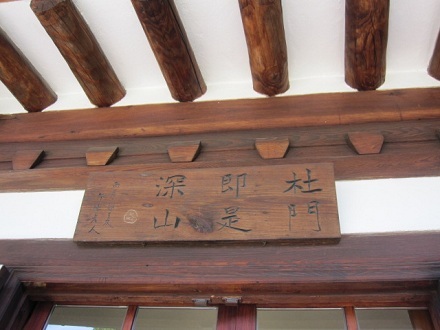 杜門
即是
深山